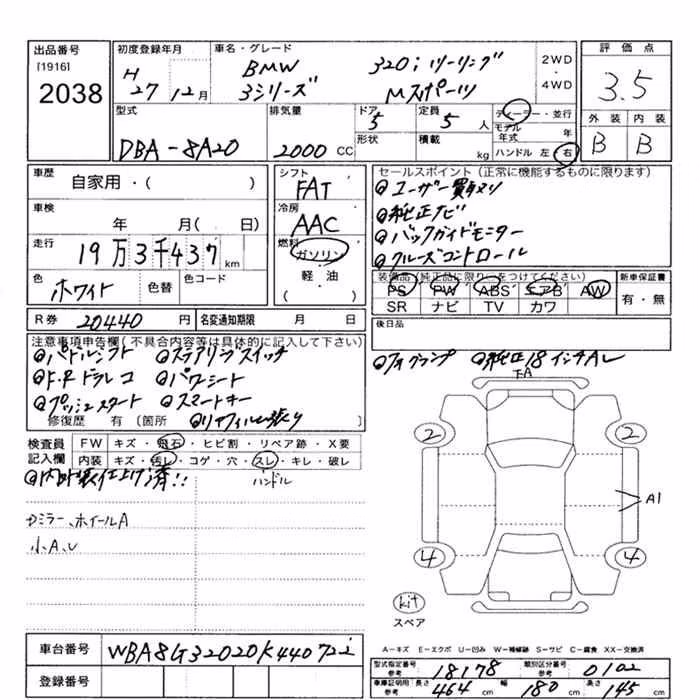 出品番号
[1916]
2038
初度登録年月
H
27 12月
車名・グレード
BMW 320i ツーリング
3シリーズ Mスポーツ
2WD
・
4WD
評価点
3.5
外装 内装
B B
型式
DBA-8A20
排気量
2000 CC
ドア
5
形状
定員
5 人
積載
kg
ディーラー・並行
モデル年式 年
ハンドル 左 右
車歴
自家用・( )
車検
年 月( 日)
走行
19万3千437km
色
ホワイト
色替
色コード
シフト
FAT
冷房
AAC
燃料
ガソリン
軽・油
( )
セールスポイント(正常に機能するものに限ります)
ユーザー買取り
純正ナビ
バックガイドモニター
クルーズコントロール
装備品(純正品に限り○をつけてください)
PS PW ABS エアB AW
SR ナビ TV カワ
新車保証書
有・無
後日品
R券 20440 円
名変通知期限 月 日
注意事項申告欄(不具合内容等は具体的に記入して下さい)
パドルシフト ステアリングスイッチ
F.Rドラレコ パワーシート
プッシュスタート スマートキー
修復歴 有〔箇所 〕
フォグランプ 純正18インチAL
下A
検査員
記入欄
FW キズ・飛石・ヒビ割・リペア跡・X要
内装 キズ・汚レ・コゲ・穴・スレ・キレ・破レ
ハンドル
内外装仕上げ済!!
ミラー、ホイールA
小A、U
2 2
A1
4 4
kit
スペア
A-キズ E-エクボ U-凹み W-補修跡 S-サビ C-腐食 XX-交換済
車台番号 WBA8G32020K440722
登録番号
型式指定番号
参考
18178
類別区分番号
参考
0102
車庫証明用
参考
長さ 464 cm 幅 180 cm 高さ 145 cm